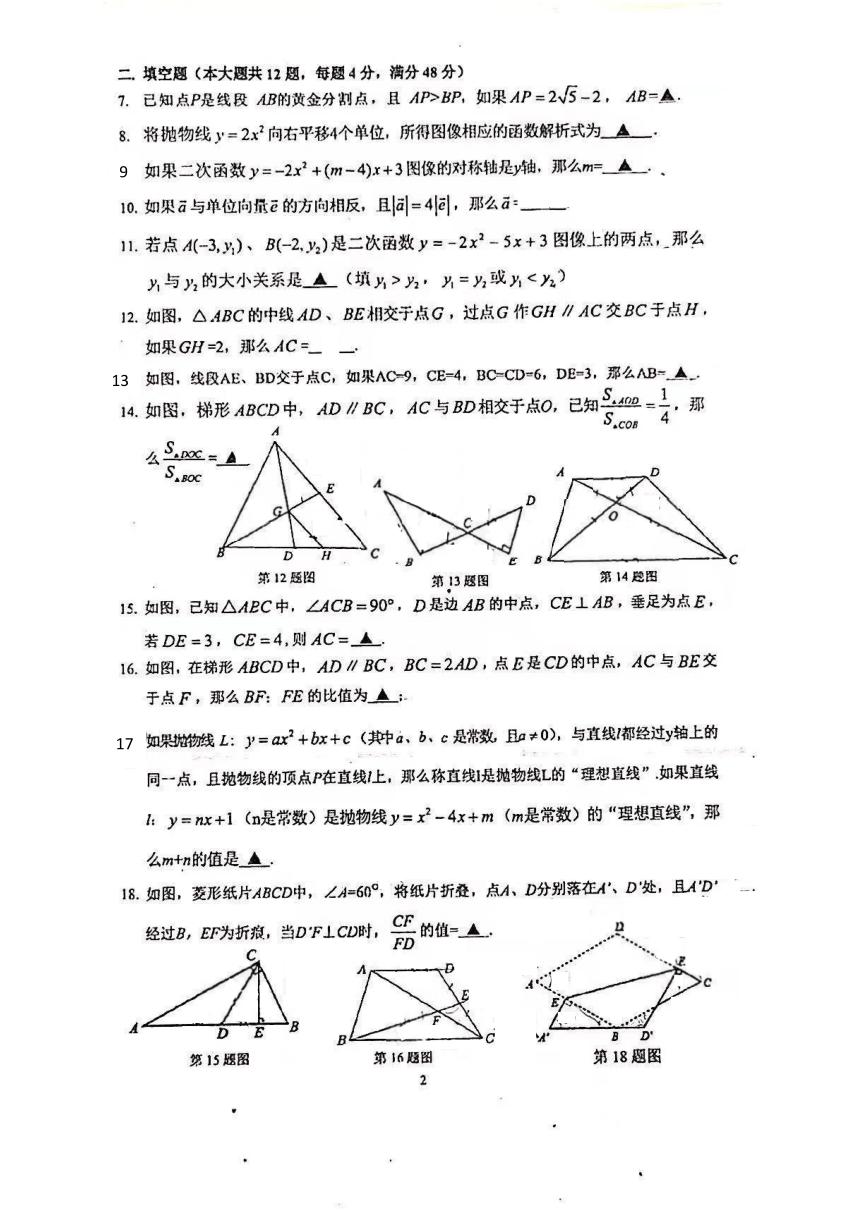 二. 填空题（本大题共 12 题，每题 4 分，满分 48 分）
7. 已知点P是线段 AB的黄金分割点，且 AP>BP，如果 AP=2√5-2， AB=▲.
8. 将抛物线 y=2x² 向右平移4个单位，所得图像相应的函数解析式为▲.
9 如果二次函数 y=-2x²+(m-4)x+3 图像的对称轴是y轴，那么m=▲.
10. 如果a⃗与单位向量e⃗的方向相反，且|a⃗|=4|e⃗|，那么a⃗=____
11. 若点 A(-3,y₁)、 B(-2,y₂)是二次函数 y=-2x²-5x+3 图像上的两点，那么
y₁与y₂的大小关系是▲（填y₁>y₂，y₁=y₂或y₁<y₂）
12. 如图，△ABC的中线AD、BE相交于点G，过点G作GH∥AC交BC于点H，
如果GH=2，那么AC=__ __.
13 如图，线段AE、BD交于点C，如果AC=9，CE=4，BC=CD=6，DE=3，那么AB=▲.
14. 如图，梯形ABCD中，AD∥BC，AC与BD相交于点O，已知S▲AOD/S▲COB=1/4，那
么S▲DOC/S▲BOC=▲
A
E
G
B
D
H
C
第 12 题图
A
D
C
B
E
第 13 题图
A
D
O
B
C
第 14 题图
15. 如图，已知△ABC中，∠ACB=90°，D是边AB的中点，CE⊥AB，垂足为点E，
若DE=3，CE=4,则AC=▲.
16. 如图，在梯形ABCD中，AD∥BC，BC=2AD，点E是CD的中点，AC与BE交
于点F，那么BF：FE的比值为▲;
17 如果抛物线 L：y=ax²+bx+c（其中a、b、c是常数，且a≠0），与直线l都经过y轴上的
同一点，且抛物线的顶点P在直线l上，那么称直线l是抛物线L的“理想直线”.如果直线
l：y=nx+1（n是常数）是抛物线y=x²-4x+m（m是常数）的“理想直线”，那
么m+n的值是▲.
18. 如图，菱形纸片ABCD中，∠A=60°，将纸片折叠，点A、D分别落在A'、D'处，且A'D'
经过B，EF为折痕，当D'F⊥CD时，CF/FD的值=▲.
C
A
D
E
B
第 15 题图
A
D
E
F
B
C
第 16 题图
D
F
A
C
E
A'
B
D'
第 18 题图
2